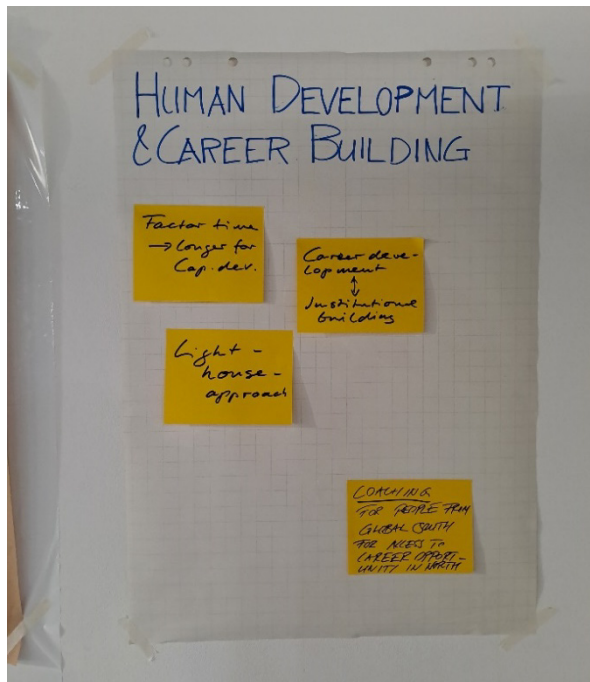 HUMAN DEVELOPMENT
& CAREER BUILDING
Factor time
→ longer for
Cap. dev.
Career deve-
lopment
↕
Institutional
building
Light-
house-
approach
COACHING
FOR PEOPLE FROM
GLOBAL SOUTH
FOR ACCESS TO
CAREER OPPORT-
UNITY IN NORTH